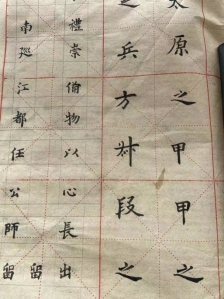 太原之甲甲之
之兵方段之
禮崇伯物以心長出
留
南廵江都任公師留